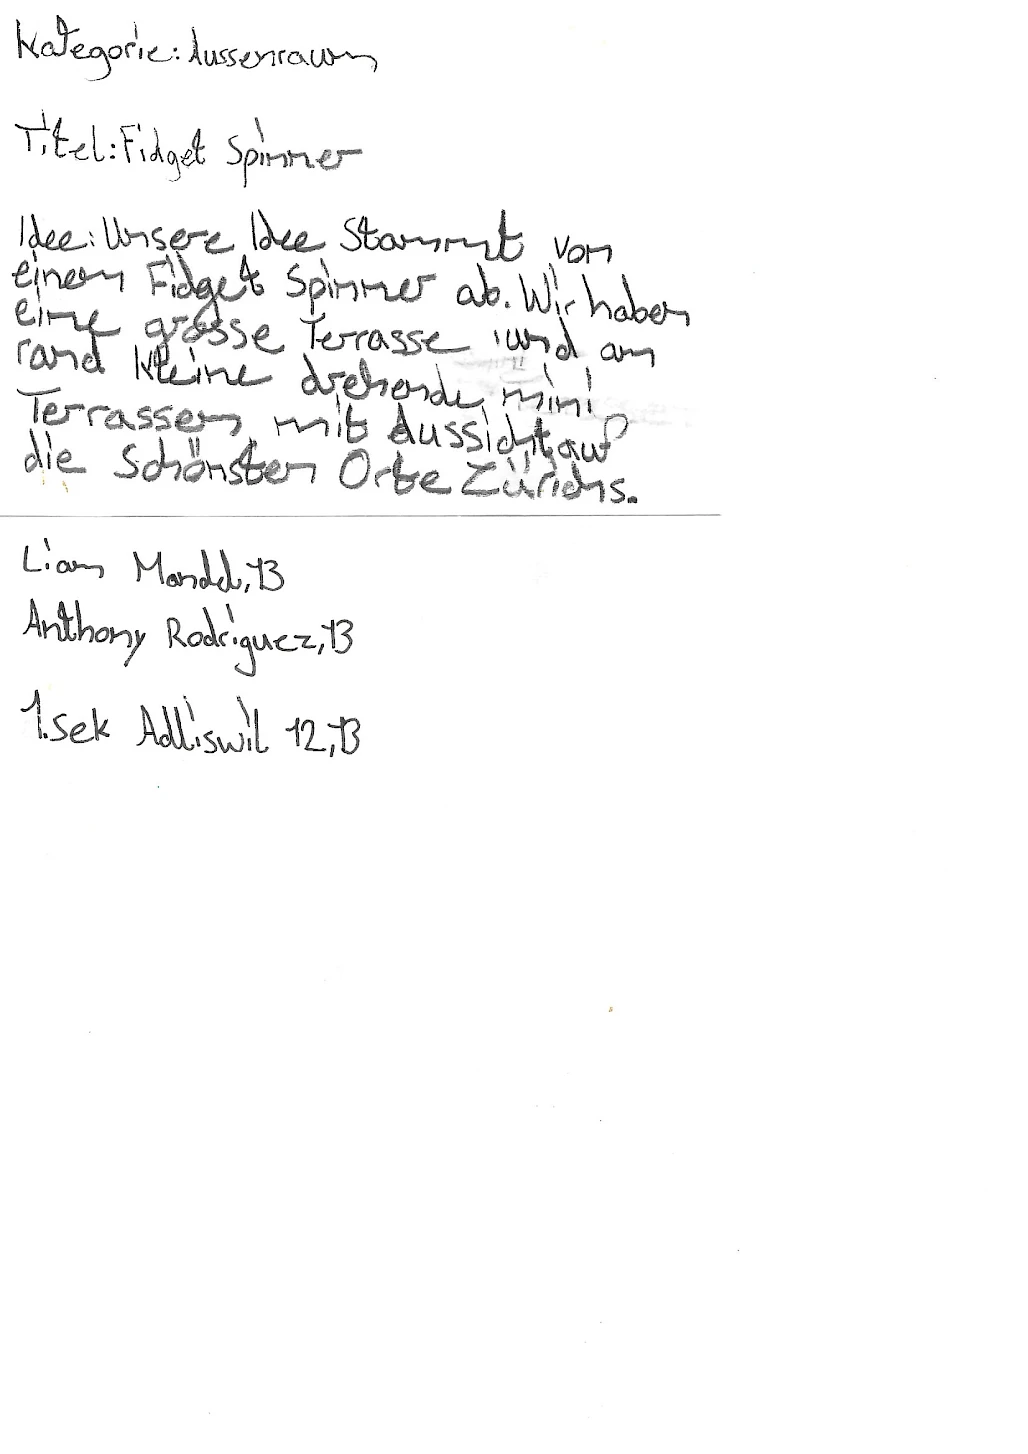 Kategorie: Aussenraum
Titel: Fidget Spinner
Idee: Unsere Idee Stammt von
einem Fidget Spinner ab. Wir haben
eine grosse Terrasse und am
rand kleine drehende mini
Terrassen mit Aussicht auf
die Schönsten Orte Zürichs.
Liam Mandel, 13
Anthony Rodriguez, 13
1. Sek Adliswil 12, 13